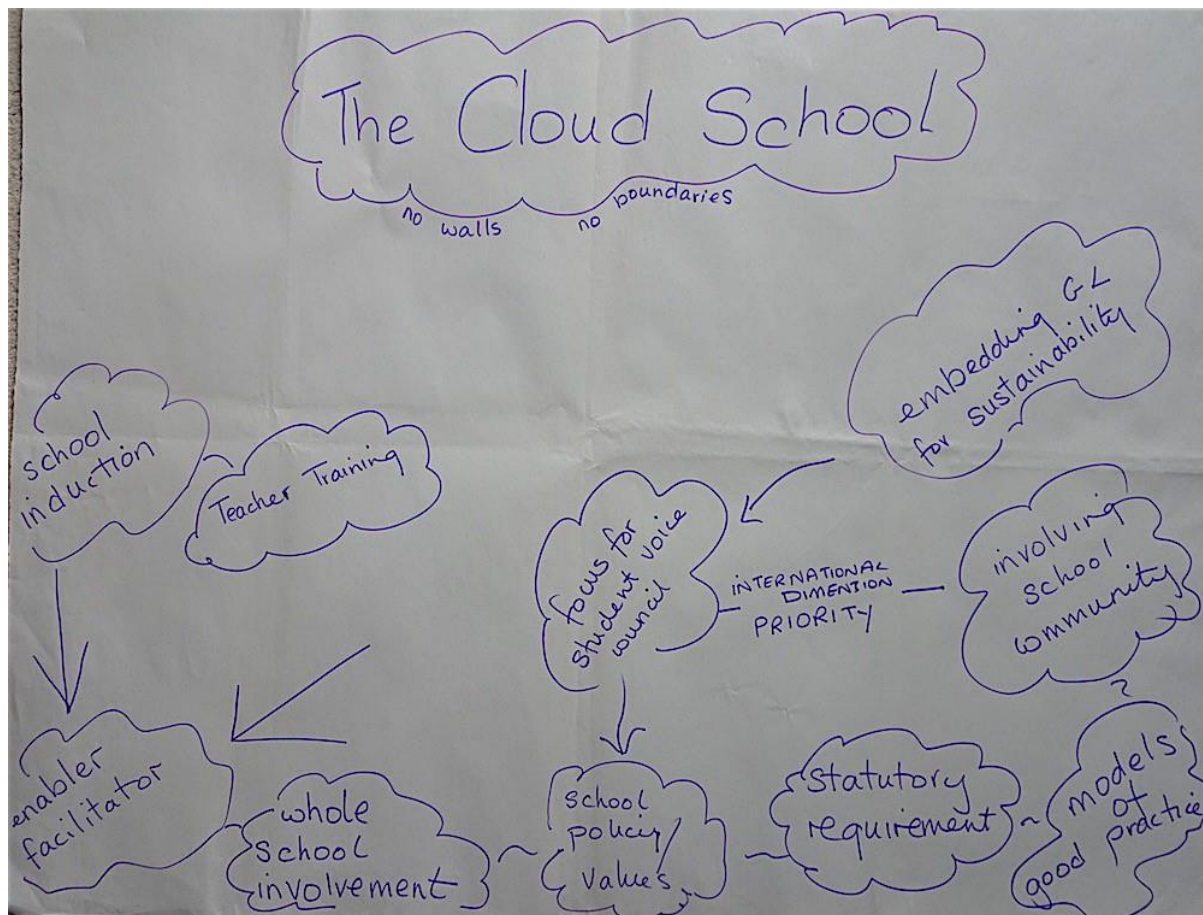 The Cloud School
no walls no boundaries
embedding GL
for sustainability
school
induction
Teacher Training
focus for
student voice
council
INTERNATIONAL
DIMENSION
PRIORITY
involving
school
community
enabler
facilitator
whole
school
involvement
school
policy/
values
statutory
requirement
models
of
good practice